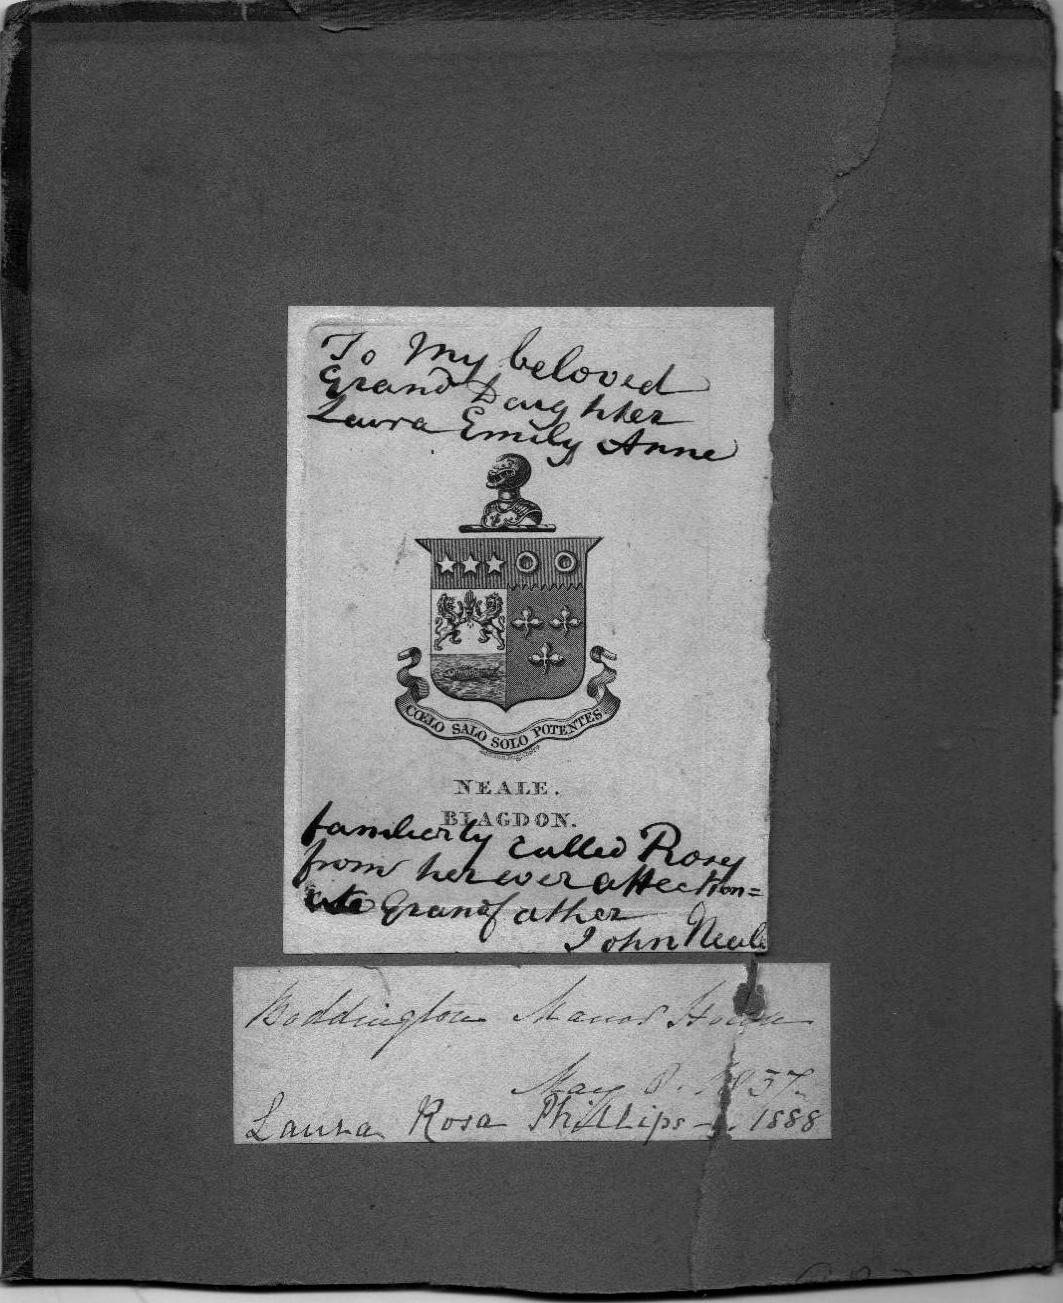 To My beloved
Grand Daughter
Laura Emily Anne
CŒLO SALO SOLO POTENTES
NEALE.
BLAGDON.
familierly called Rosey
from her ever affection=
ate Grandfather
John Neale
Boddington Manor House
May 8. 1857.
Laura Rosa Phillips 1888